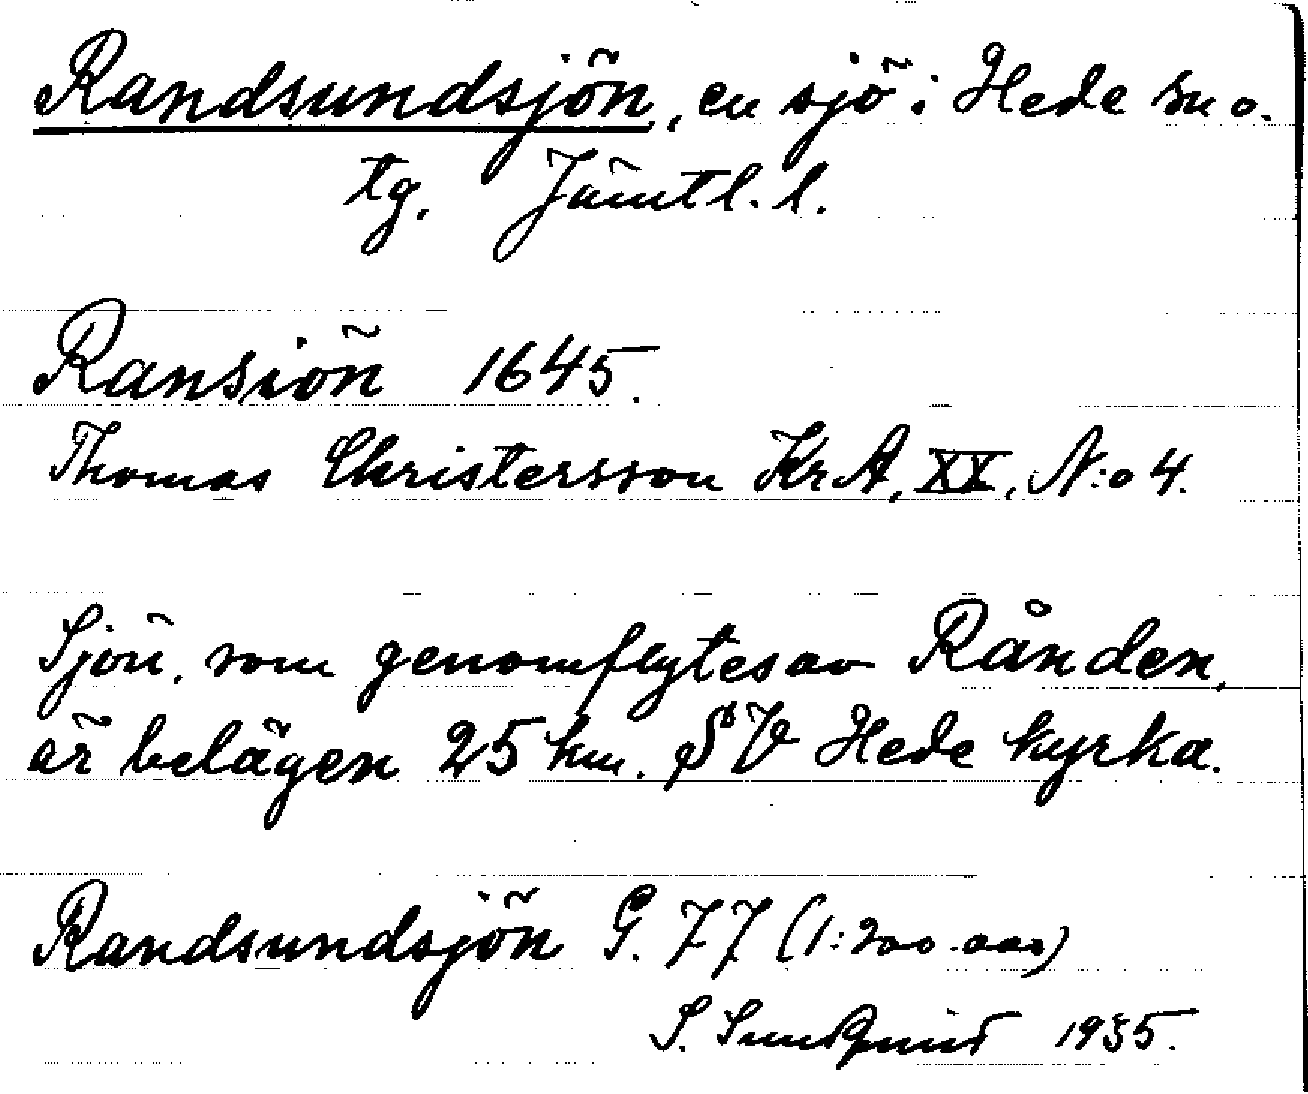 Randsundsjön, en sjö i Hede sn o.
tg. Jämtl. l.
Ransiön 1645.
Thomas Christersson KrA, XX, N:o 4.
Sjön, som genomflytes av Rånden,
är belägen 25 km. SV Hede kyrka.
Randsundsjön G. 77 (1:200.000)
S. Sundquist 1935.